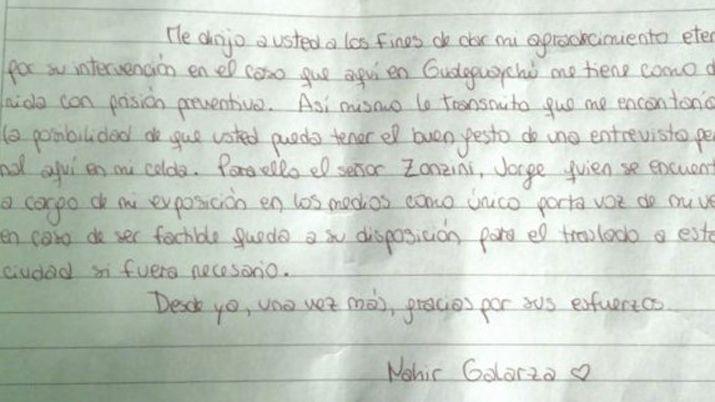 Me dirijo a usted a los fines de dar mi agradecimiento eter
por su intervención en el caso que aquí en Gudeguaychú me tiene como d
nida con prisión preventiva. Asi mismo le transmito que me encantaría
la posibilidad de que usted pueda tener el buen gesto de una entrevista per
nal aquí en mi celda. Para ello el señor Zonzini, Jorge quien se encuent
a cargo de mi exposición en los medios como único porta voz de mi ve
en caso de ser factible queda a su disposición para el traslado a esta
ciudad si fuera necesario.
Desde ya, una vez más, gracias por sus esfuerzos
Nahir Galarza ♡